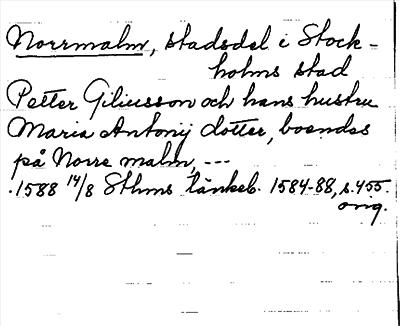 Norrmalm, stadsdel i Stock-
holms stad
Petter Giliusson och hans hustru
Maria Antonij dotter, boendes
på Norre malm, ---
.1588 14/8 Sthms tänkeb. 1584-88, s.455.
orig.